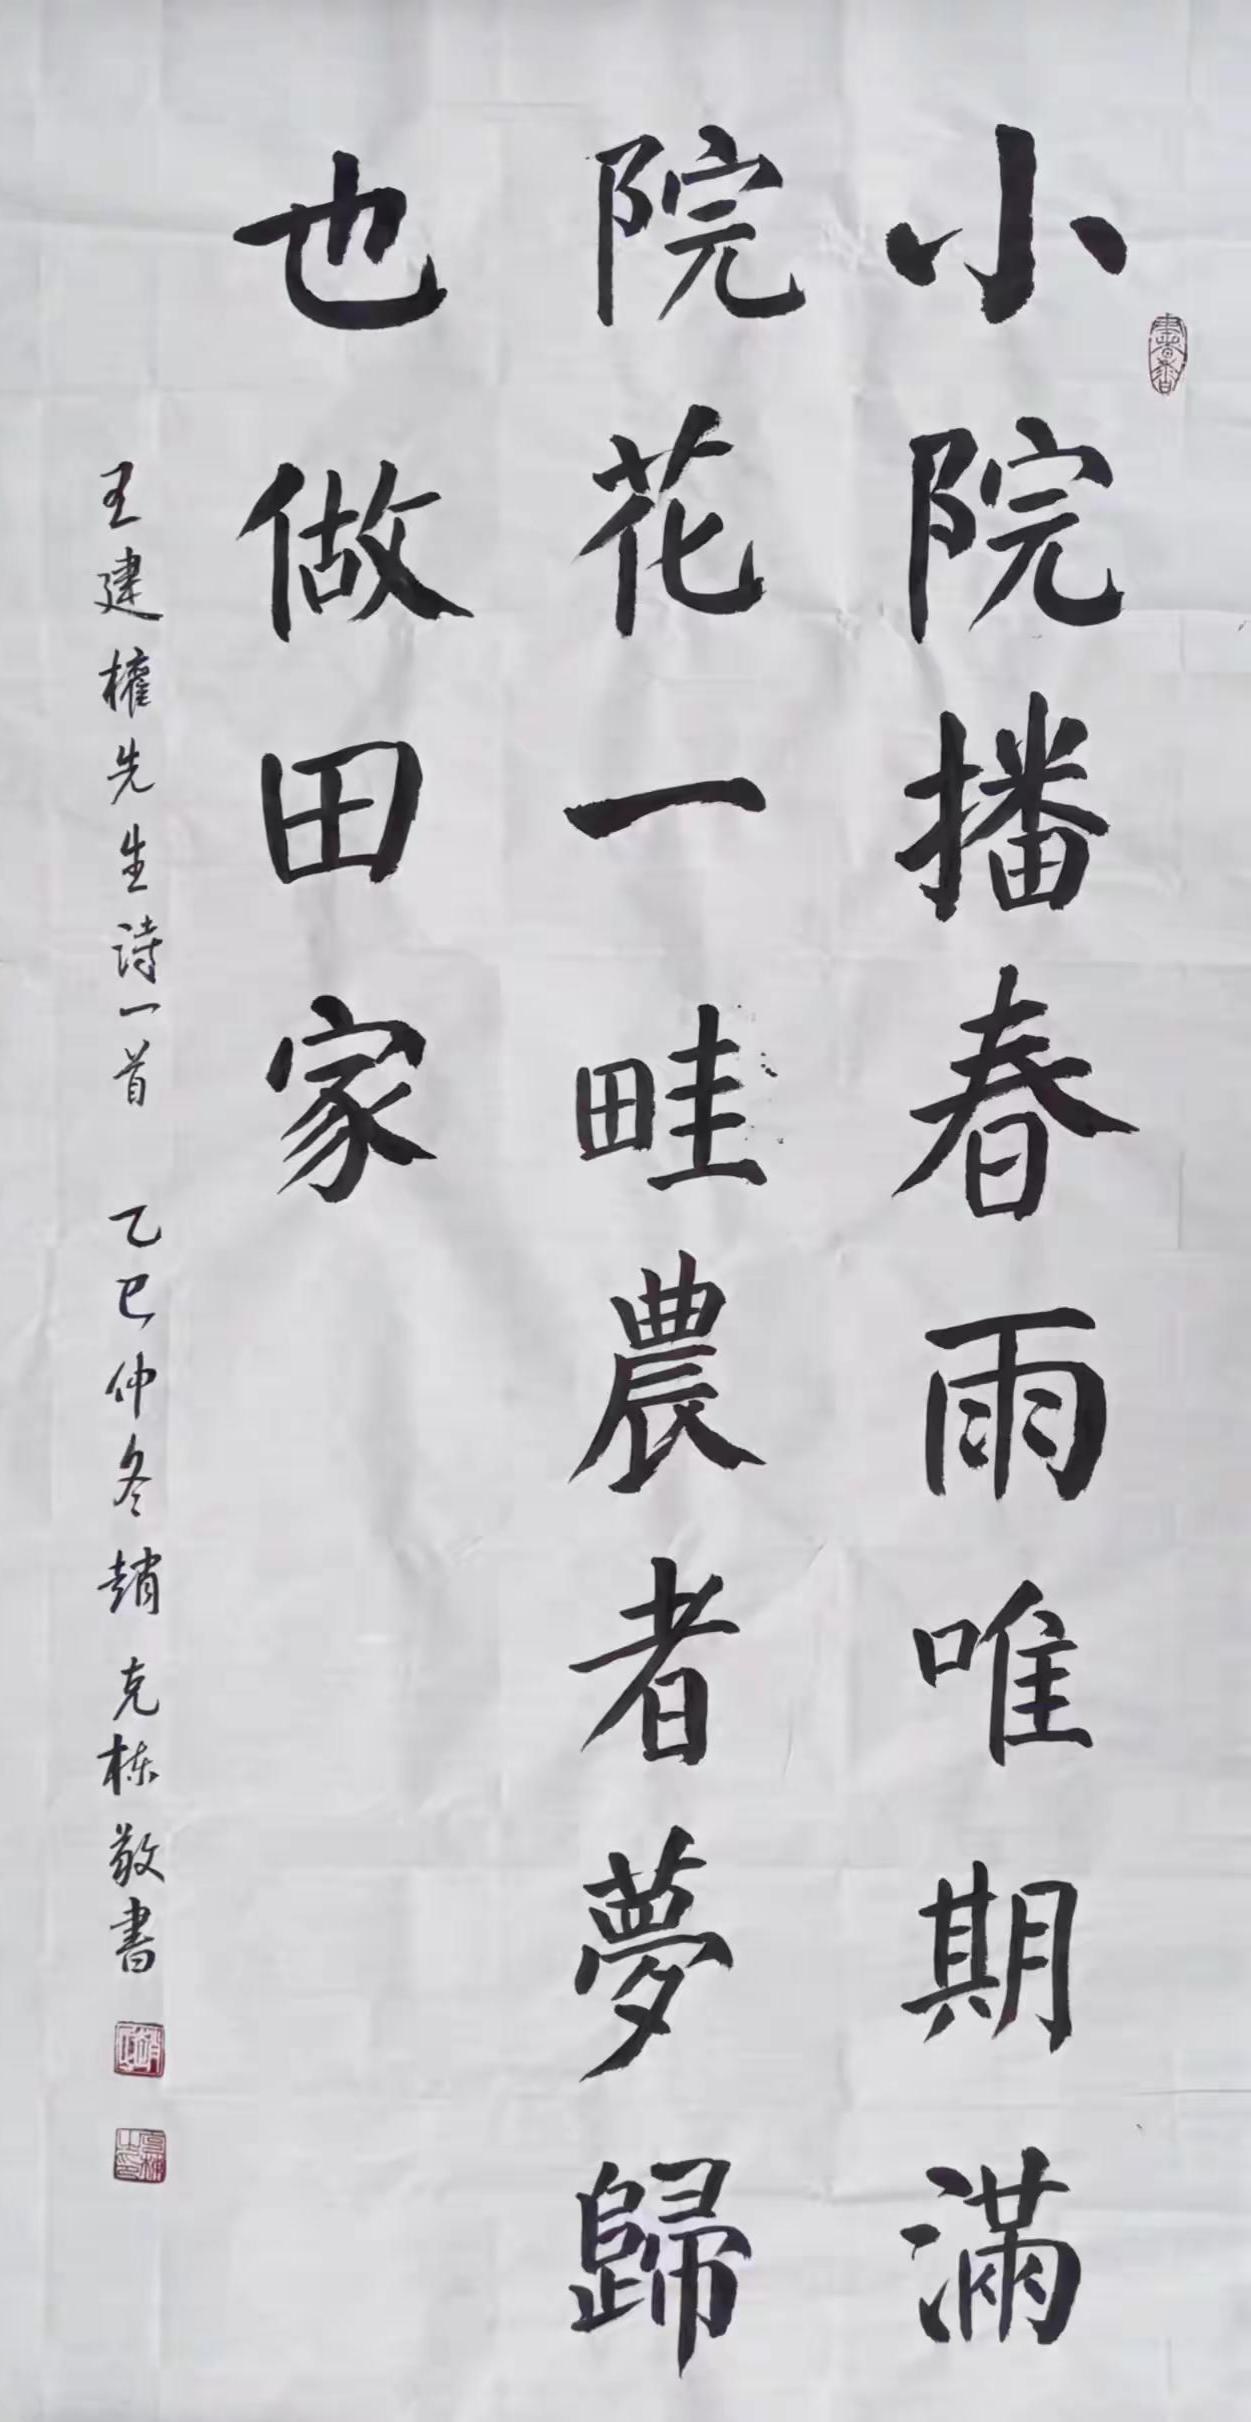 小院播春雨唯期滿
院花一畦農者夢歸
也做田家
王建權先生诗一首 乙巳仲冬趙克栋敬書
書香